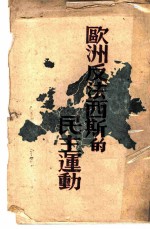 歐洲反法西斯的
民主運動